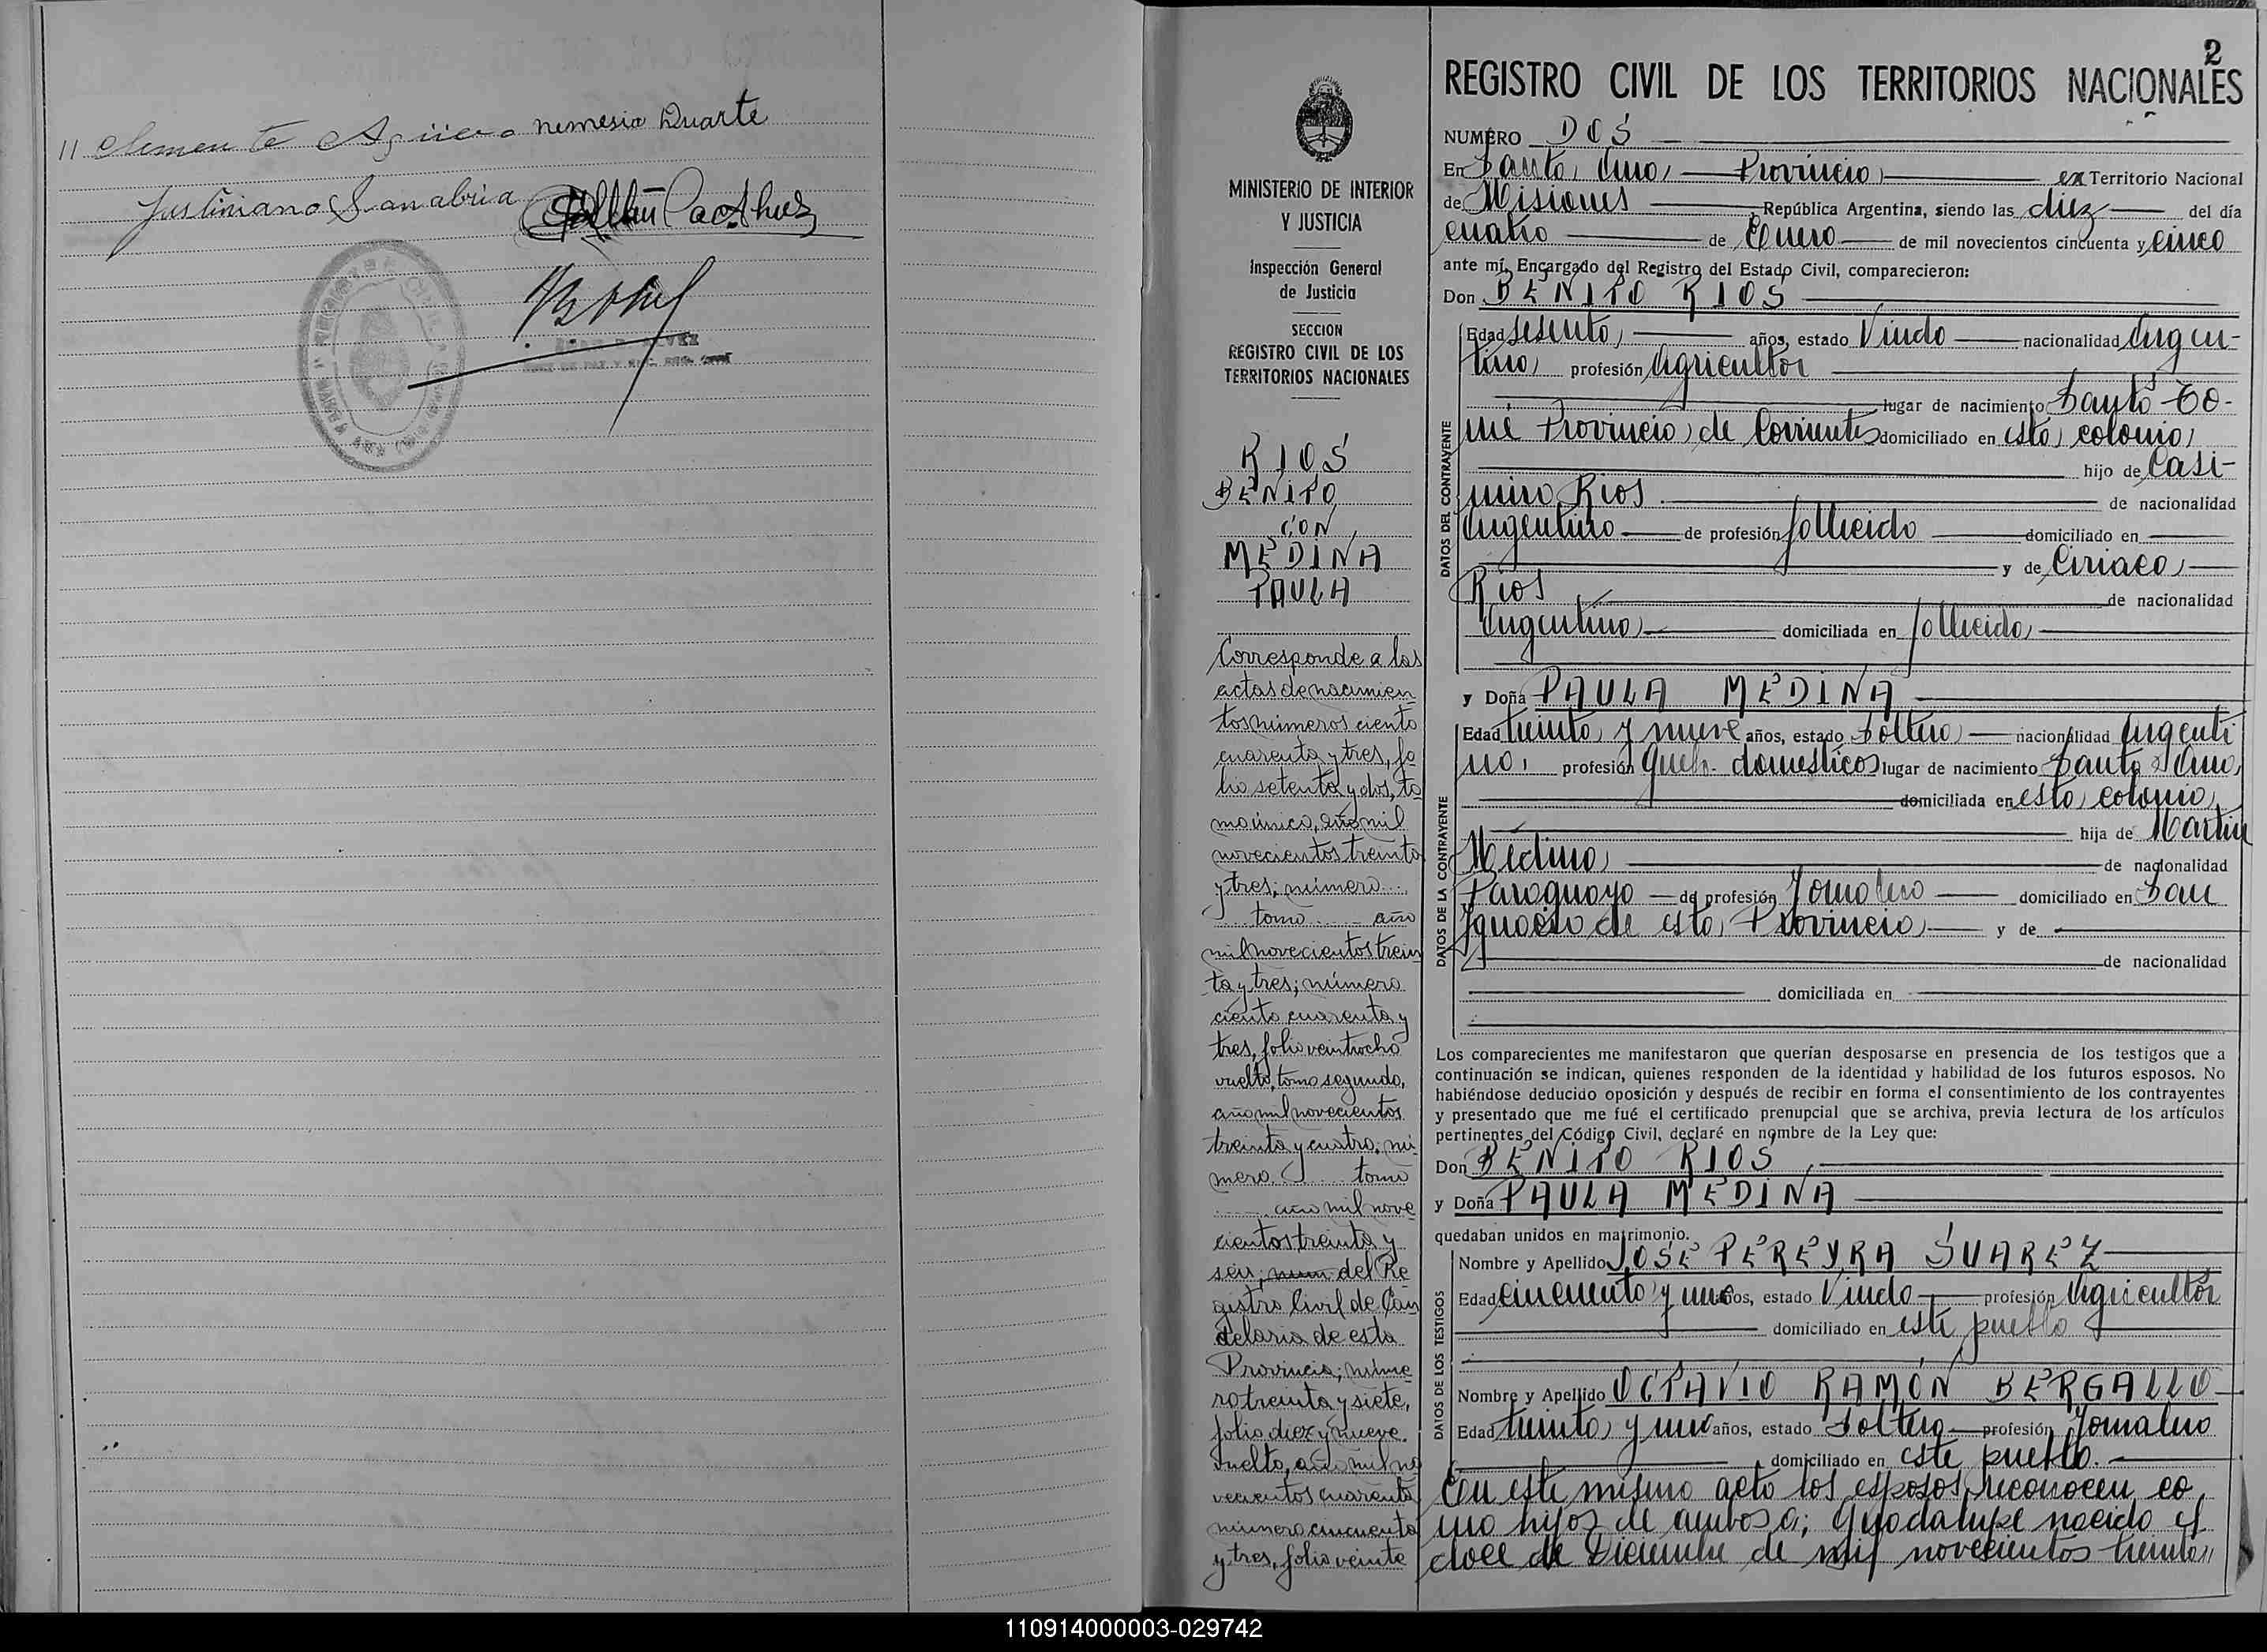 11 Clemente Agüero nemesia Duarte
Justiniano Sanabria
2
REGISTRO CIVIL DE LOS TERRITORIOS NACIONALES
MINISTERIO DE INTERIOR
Y JUSTICIA
Inspección General
de Justicia
SECCION
REGISTRO CIVIL DE LOS
TERRITORIOS NACIONALES
RIOS
BENITO
CON
MEDINA
PAULA
Corresponde a las
actas de nacimien
tos números ciento
cuarenta y tres, fo
lio setenta y dos, to
mo único, año mil
novecientos treinta
y tres; número
tomo año
mil novecientos trein
ta y tres; número
ciento cuarenta y
tres, folio veintiocho
vuelto, tomo segundo,
año mil novecientos
treinta y cuatro; nú
mero tomo
año mil nove
cientos treinta y
seis; num del Re
gistro Civil de Can
delaria de esta
Provincia; núme
ro treinta y siete,
folio diez y nueve
vuelto, año mil no
vecientos cuarenta
número cincuenta
y tres, folio veinte
NUMERO DOS
En Santa Ana, Provincia ex Territorio Nacional
de Misiones República Argentina, siendo las diez del día
cuatro de Enero de mil novecientos cincuenta y cinco
ante mí, Encargado del Registro del Estado Civil, comparecieron:
Don BENITO RIOS
DATOS DEL CONTRAYENTE
Edad sesenta años, estado Viudo nacionalidad Argen-
tina profesión Agricultor
lugar de nacimiento Santo To-
mé Provincia de Corrientes domiciliado en esta colonia
hijo de Casi-
miro Rios de nacionalidad
Argentino de profesión fallecido domiciliado en
y de Ciriaca
Rios de nacionalidad
Argentina domiciliada en fallecida
y Doña PAULA MEDINA
DATOS DE LA CONTRAYENTE
Edad treinta y nueve años, estado Soltera nacionalidad Argenti
na profesión Queh. domesticos lugar de nacimiento Santa Ana
domiciliada en esta colonia
hija de Martin
Medina de nacionalidad
Paraguayo de profesión Jornalero domiciliado en San
Ignacio de esta Provincia y de
de nacionalidad
domiciliada en
Los comparecientes me manifestaron que querían desposarse en presencia de los testigos que a
continuación se indican, quienes responden de la identidad y habilidad de los futuros esposos. No
habiéndose deducido oposición y después de recibir en forma el consentimiento de los contrayentes
y presentado que me fué el certificado prenupcial que se archiva, previa lectura de los artículos
pertinentes del Código Civil, declaré en nombre de la Ley que:
Don BENITO RIOS
y Doña PAULA MEDINA
quedaban unidos en matrimonio.
DATOS DE LOS TESTIGOS
Nombre y Apellido JOSÉ PEREYRA SUAREZ
Edad cincuenta y un años, estado Viudo profesión Agricultor
domiciliado en este pueblo
Nombre y Apellido OCTAVIO RAMÓN BERGALLO
Edad treinta y un años, estado Soltero profesión Jornalero
domiciliado en este pueblo.
En este mismo acto los esposos reconocen co
mo hijos de ambos a; Guadalupe nacido el
doce de Diciembre de mil novecientos treinta
110914000003-029742